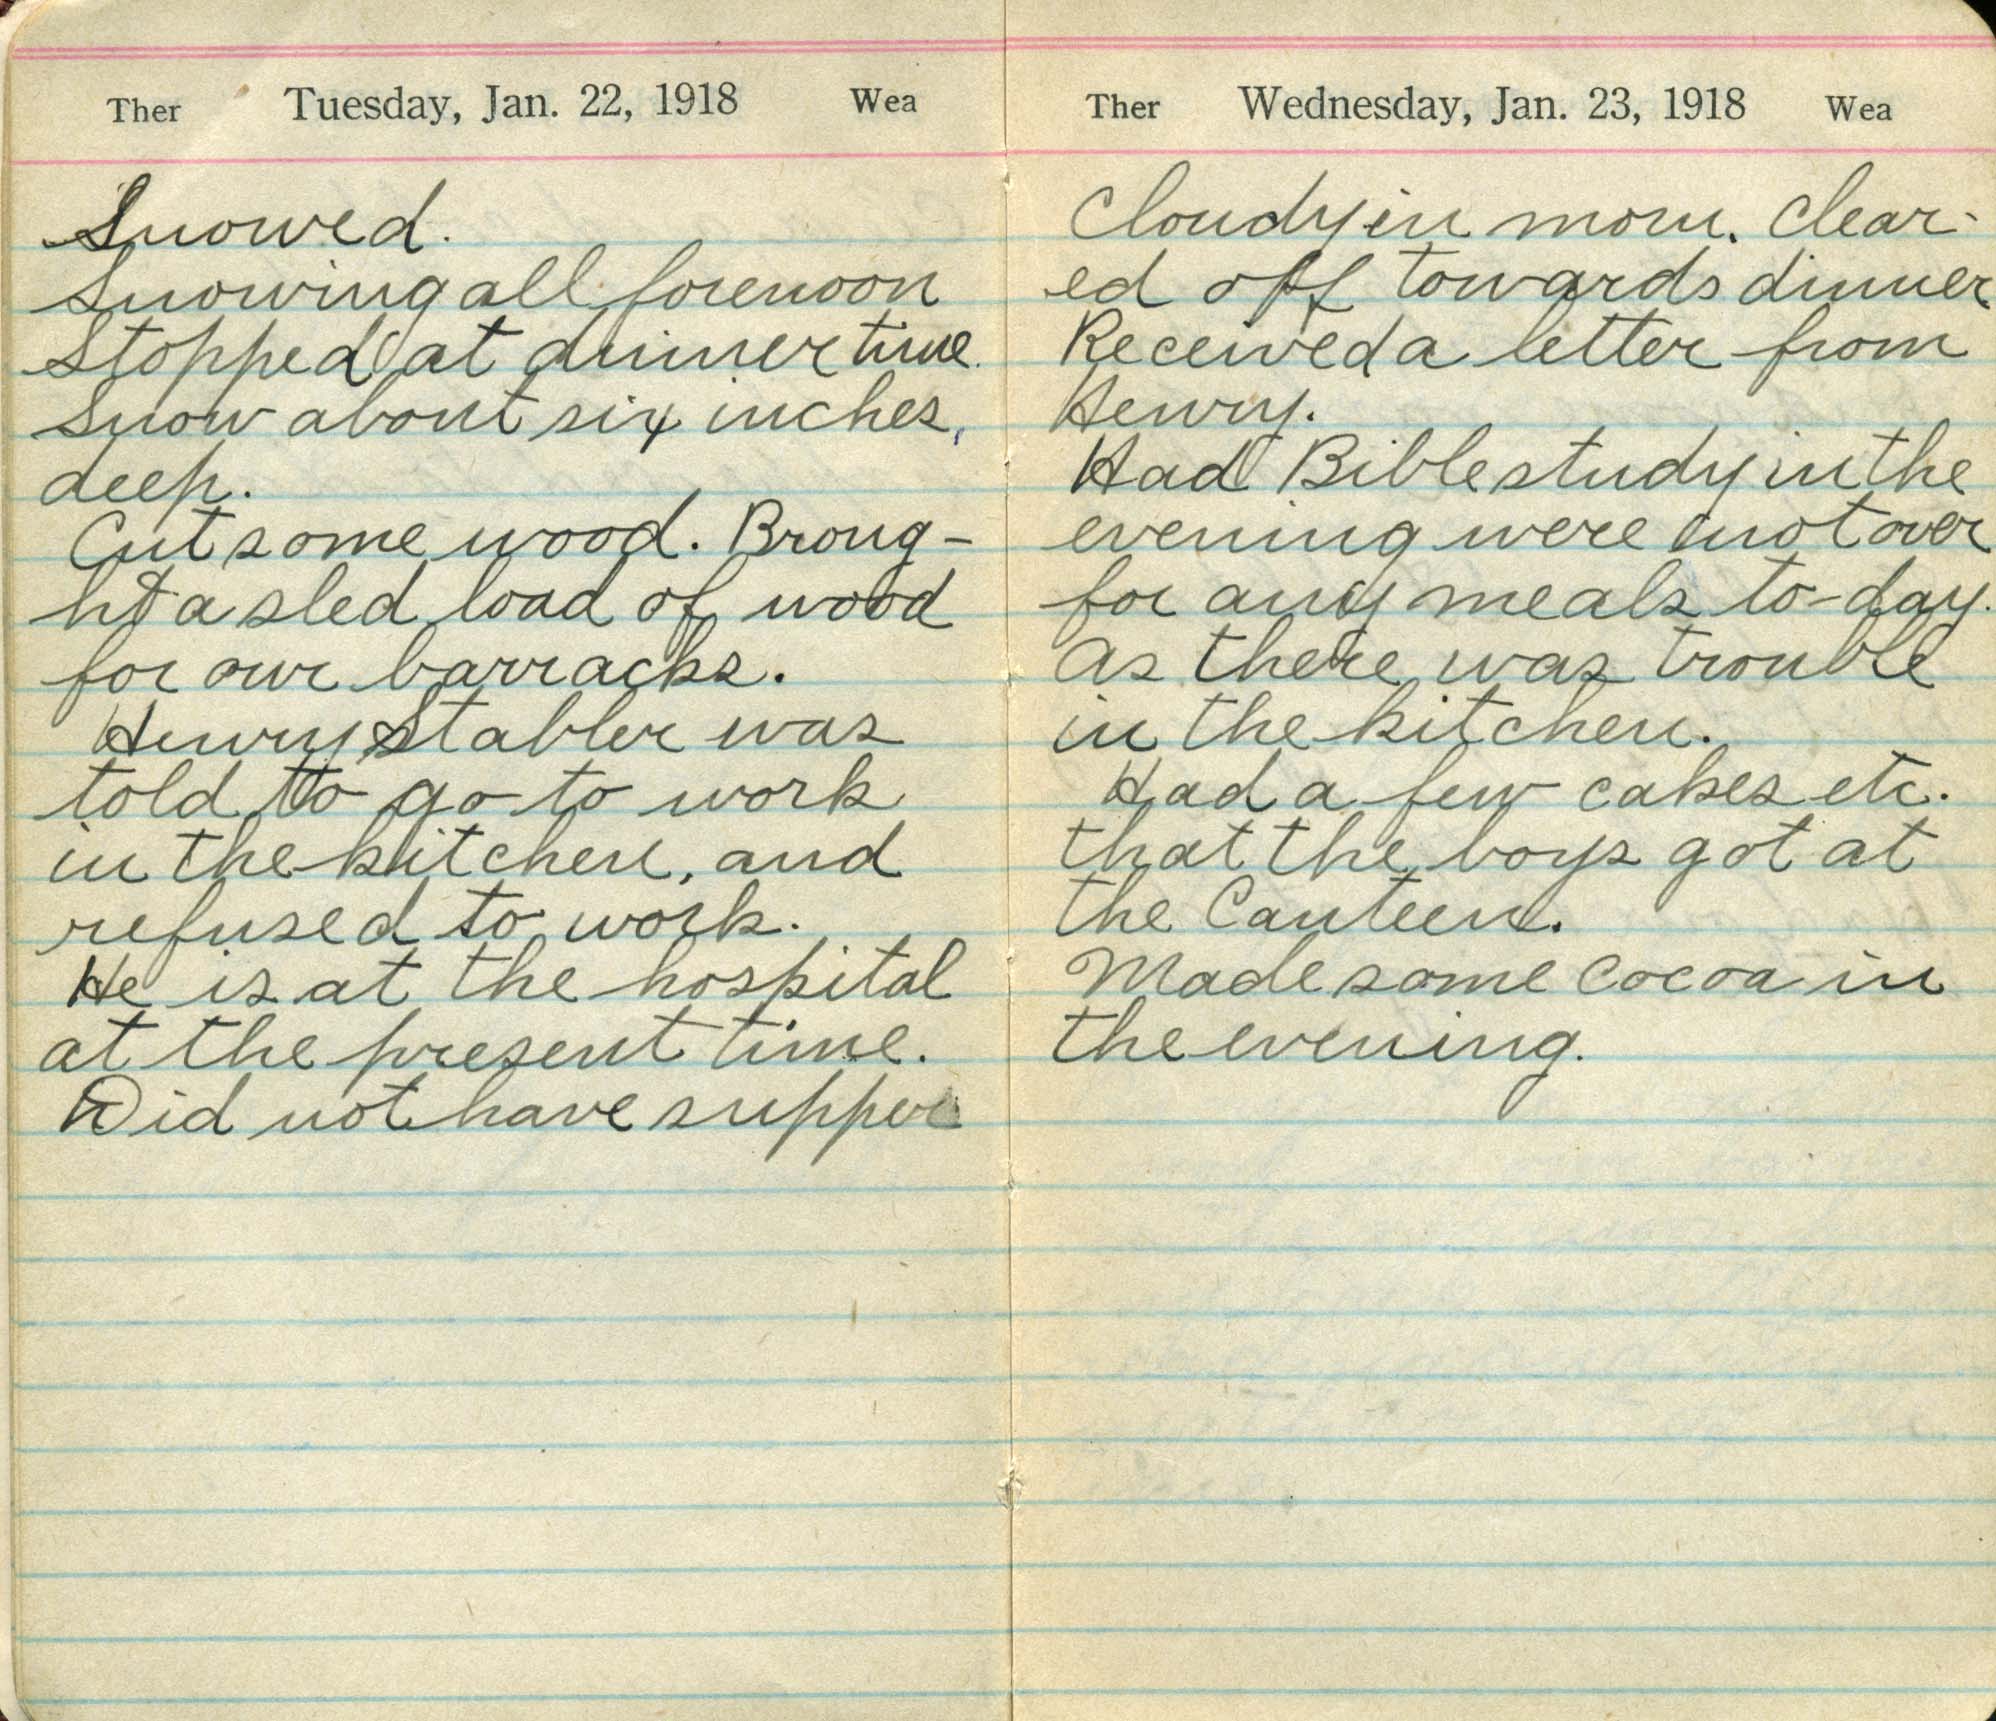 Ther Tuesday, Jan. 22, 1918 Wea
Snowed.
Snowing all forenoon
Stopped at dinner time.
Snow about six inches,
deep.
Cut some wood. Broug-
ht a sled load of wood
for our barracks.
Henry Stabler was
told to go to work
in the kitchen, and
refused to work.
He is at the hospital
at the present time.
Did not have supper
Ther Wednesday, Jan. 23, 1918 Wea
Cloudy in morn. Clear-
ed off towards dinner
Received a letter from
Henry.
Had Bible study in the
evening were not over
for any meals to-day.
As there was trouble
in the kitchen.
Had a few cakes etc.
that the boys got at
the Canteen.
Made some Cocoa in
the evening.